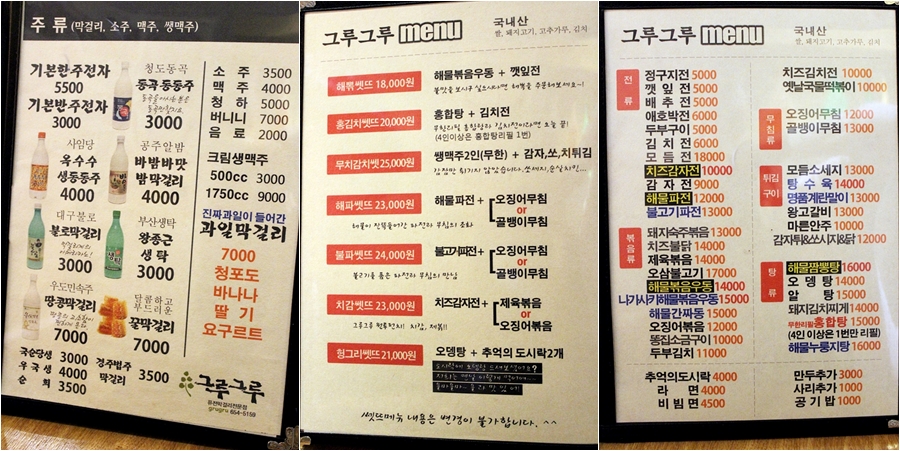 주 류 (막걸리, 소주, 맥주, 쨍맥주)
기본한주전자
5500
기본반주전자
3000
청도동곡
동곡동동주
3000
사임당
옥수수
생동동주
4000
공주알밤
바밤바맛
밤막걸리
4000
대구불로
불로막걸리
3000
부산생탁
왕종근
생 탁
3000
우도민속주
땅콩막걸리
7000
달콤하고
부드러운
꿀막걸리
7000
국순당생 3000
우 국 생 4000
순 희 3500
경주법주
막걸리 3500
소 주 3500
맥 주 4000
청 하 5000
버니니 7000
음 료 2000
크림생맥주
500cc 3000
1750cc 9000
진짜과일이 들어간
과일막걸리
7000
청포도
바나나
딸 기
요구르트
그루그루
퓨전막걸리전문점
grugru 654-5159
그루그루 menu
국내산
쌀, 돼지고기, 고추가루, 김치
해뽂쎗뜨 18,000원
해물볶음우동 + 깻잎전
홍김치쎗뜨 20,000원
홍합탕 + 김치전
(4인이상은 홍합탕리필 1번)
무치감치쎗 25,000원
쨍맥주2인(무한) + 감자,쏘,치튀김
해파쎗뜨 23,000원
해물파전 + 오징어무침
or
골뱅이무침
불파쎗뜨 24,000원
불고기파전 + 오징어무침
or
골뱅이무침
치감쎗뜨 23,000원
치즈감자전 + 제육볶음
or
오징어볶음
헝그리쎗뜨 21,000원
오뎅탕 + 추억의 도시락2개
쎗뜨메뉴 내용은 변경이 불가합니다. ^^
그루그루 menu
국내산
쌀, 돼지고기, 고추가루, 김치
전류
정구지전 5000
깻 잎 전 5000
배 추 전 5000
애호박전 6000
두부구이 5000
김 치 전 6000
모 듬 전 18000
치즈감자전 10000
감 자 전 9000
해물파전 12000
불고기파전 13000
볶음류
돼지숙주볶음 13000
치즈불닭 14000
제육볶음 14000
오삼불고기 17000
해물볶음우동 14000
나가사키해물볶음우동 15000
해물간짜동 15000
오징어볶음 12000
똥집소금구이 10000
두부김치 11000
추억의도시락 4000
라 면 4000
비 빔 면 4500
치즈김치전 10000
옛날국물떡볶이 10000
무침류
오징어무침 12000
골뱅이무침 13000
튀김구이
모듬소세지 13000
탕 수 육 14000
명품계란말이 13000
왕고갈비 13000
마른안주 10000
감자튀&쏘시지&닭 12000
탕류
해물짬뽕탕 16000
오 뎅 탕 14000
알 탕 15000
돼지김치찌개 14000
무한리필홍합탕 15000
(4인 이상은 1번만 리필)
해물누룽지탕 16000
만두추가 3000
사리추가 1000
공 기 밥 1000